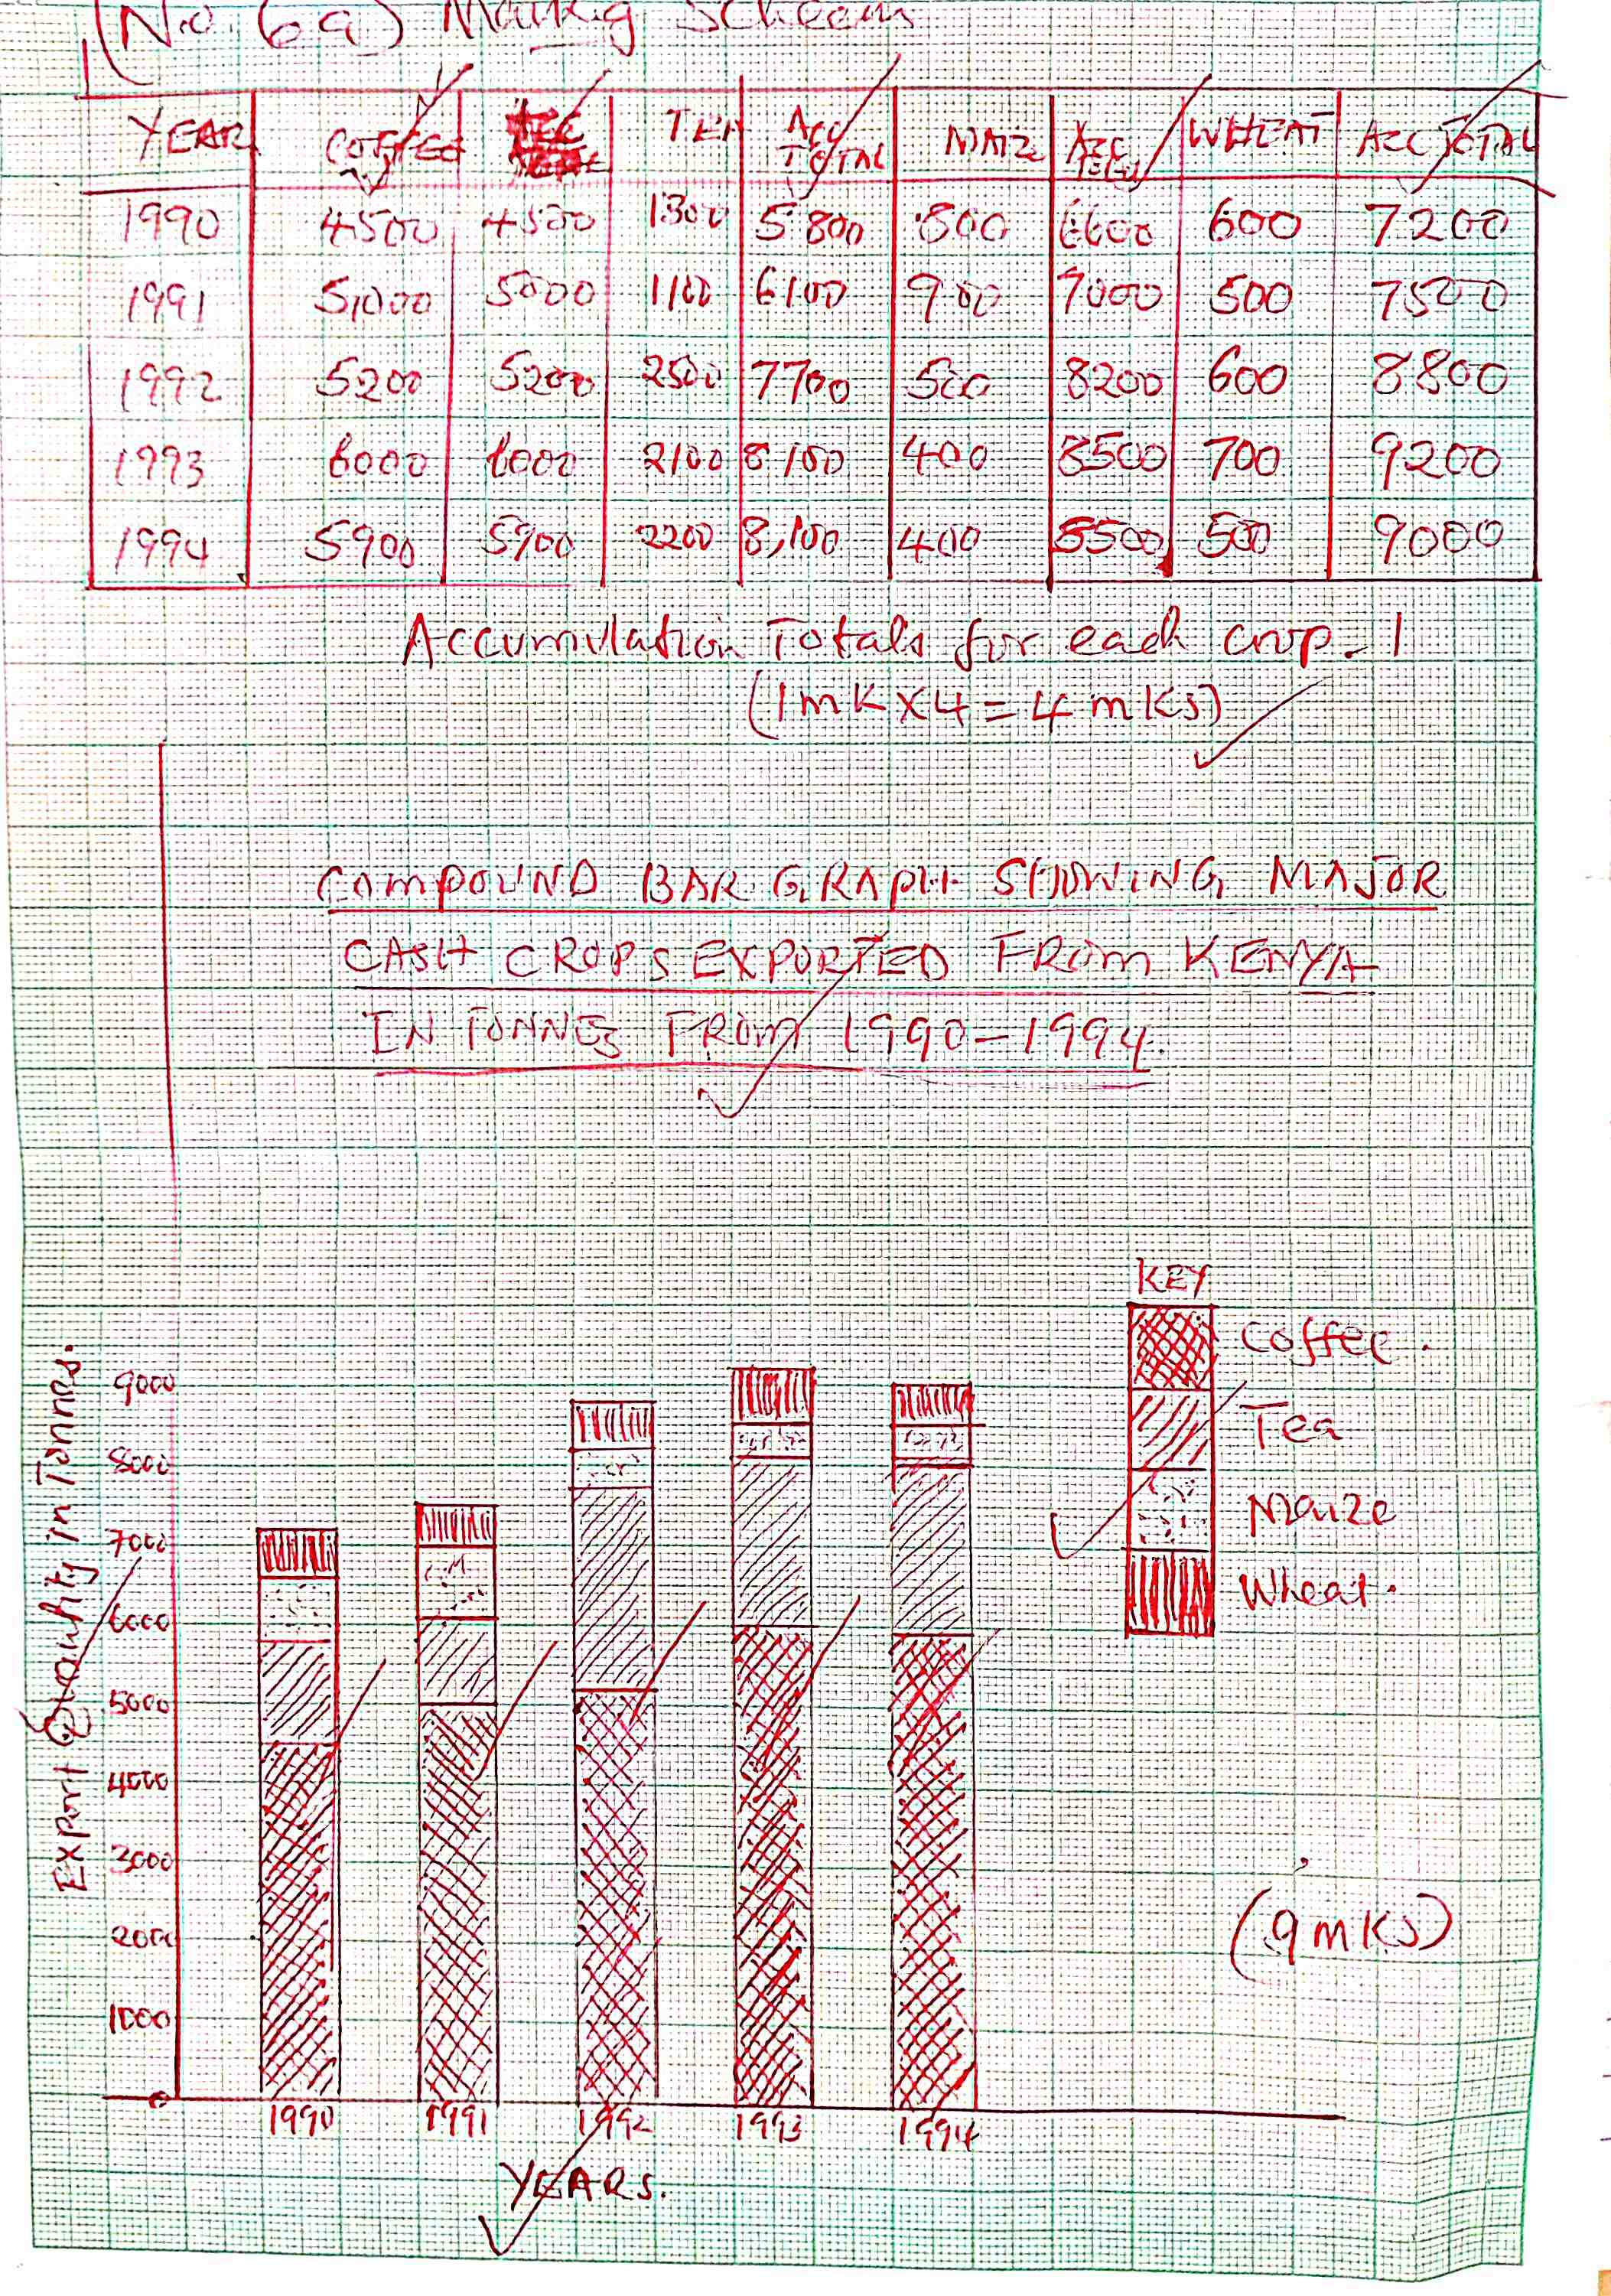 (No. 6a) Marking Scheem
YEAR COFFEE TEA ACC TOTAL MAIZE ACC TOTAL WHEAT ACC TOTAL
1990 4500 4500 1300 5800 800 6600 600 7200
1991 5,000 5000 1100 6100 900 7000 500 7500
1992 5200 5200 2500 7700 500 8200 600 8800
1993 6000 6000 2100 8100 400 8500 700 9200
1994 5900 5900 2200 8,100 400 8500 500 9000
Accumulation Totals for each crop - 1
(1mK X 4 = 4 mKs)
COMPOUND BAR GRAPH SHOWING MAJOR
CASH CROPS EXPORTED FROM KENYA
IN TONNES FROM 1990-1994.
KEY
Coffee.
Tea
Maize
Wheat.
Export Quantity in Tonnes.
9000
8000
7000
6000
5000
4000
3000
2000
1000
0
(9mKs)
1990 1991 1992 1993 1994
YEARS.